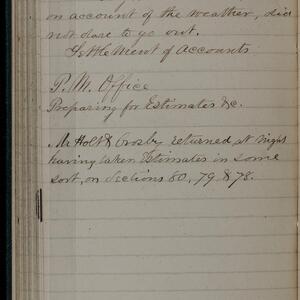 on account of the weather, did
not dare to go out.
Settlement of Accounts
P.M. Office
Preparing for Estimates &c.
Mr Holt & Crosby returned at night
having taken Estimates in some
sort, on Sections 80, 79 & 78.